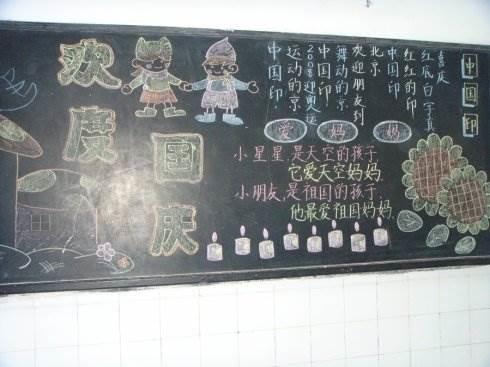 欢度
国庆
中国印
喜庆
红底白字真
红红的印
中国印
北京
欢迎朋友到
舞动的京
中国印
2008迎奥运
运动的京
中国印
爱 妈 妈
小星星,是天空的孩子,
它爱天空妈妈.
小朋友,是祖国的孩子,
他最爱祖国妈妈.